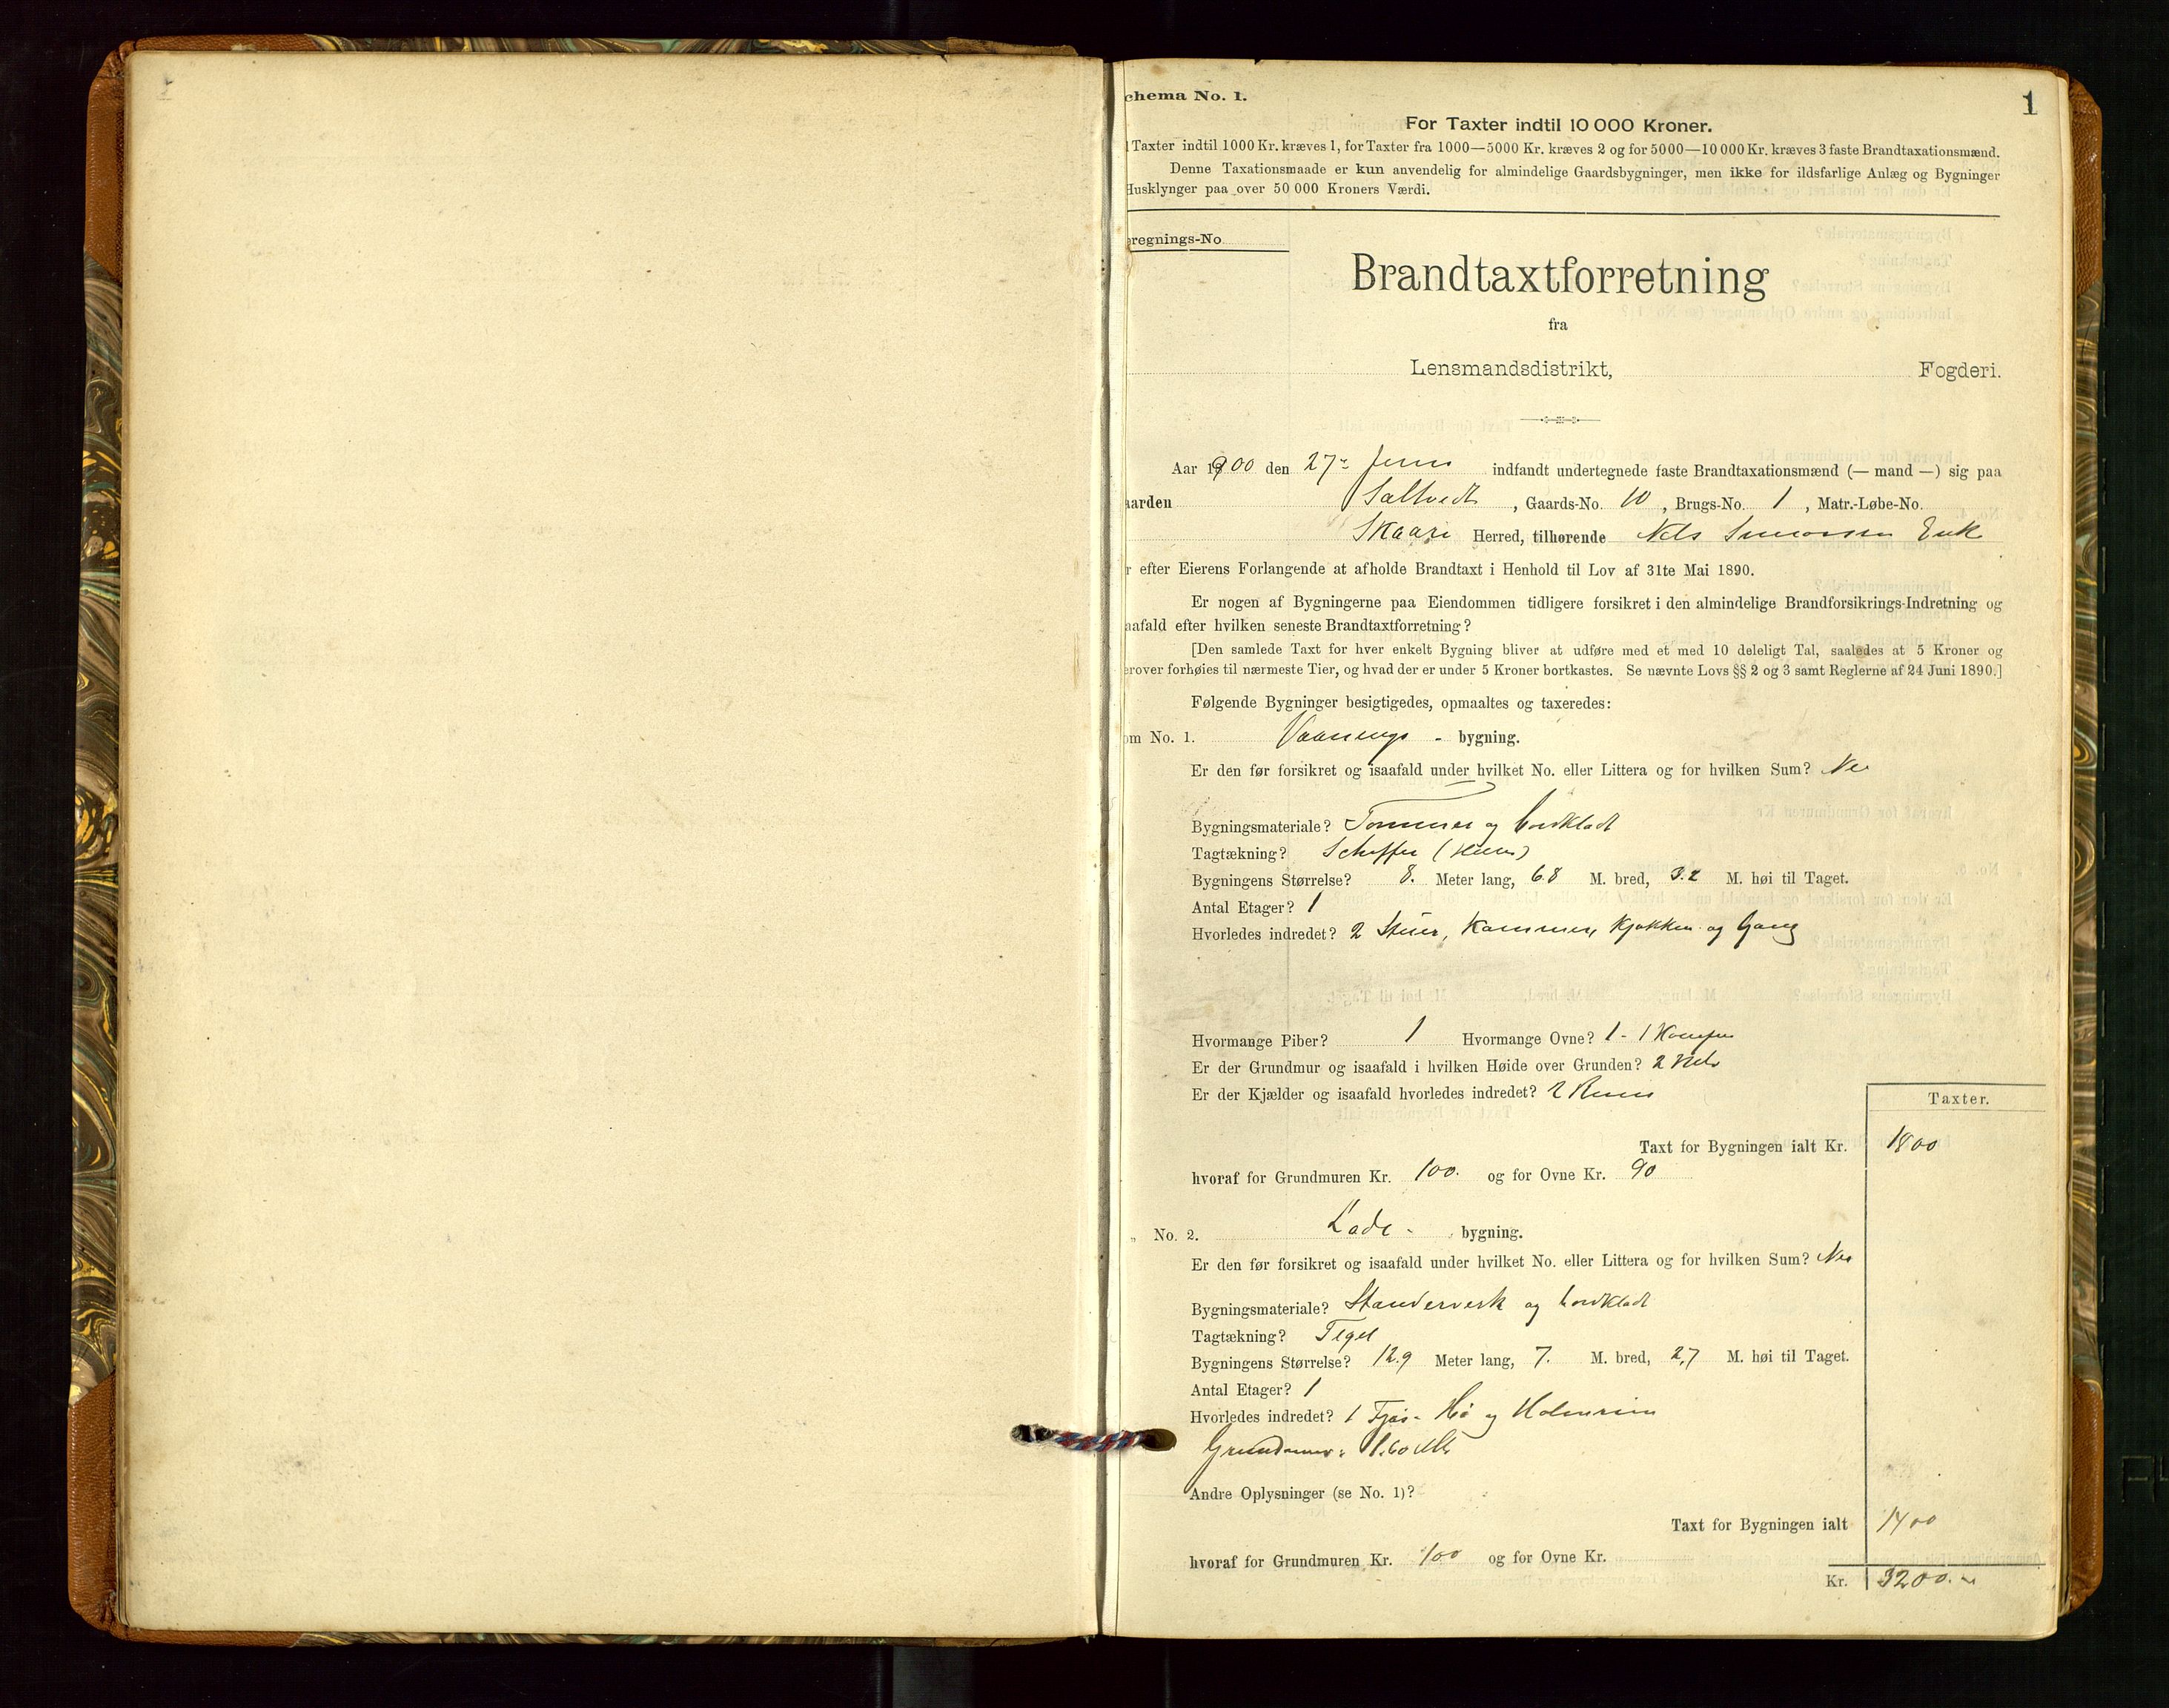 1
chema No. 1.
For Taxter indtil 10 000 Kroner.
Taxter indtil 1000 Kr. kræves 1, for Taxter fra 1000—5000 Kr. kræves 2 og for 5000—10 000 Kr. kræves 3 faste Brandtaxationsmænd.
Denne Taxationsmaade er kun anvendelig for almindelige Gaardsbygninger, men ikke for ildsfarlige Anlæg og Bygninger
Husklynger paa over 50 000 Kroners Værdi.
regnings-No
Brandtaxtforretning
fra
Lensmandsdistrikt, Fogderi.
Aar 1900 den 27. Juni indfandt undertegnede faste Brandtaxationsmænd (— mand —) sig paa
aarden Saltvedt, Gaards-No. 10, Brugs-No. 1, Matr.-Løbe-No.
Skaare Herred, tilhørende Nels Simonsen Enk
r efter Eierens Forlangende at afholde Brandtaxt i Henhold til Lov af 31te Mai 1890.
Er nogen af Bygningerne paa Eiendommen tidligere forsikret i den almindelige Brandforsikrings-Indretning og
aafald efter hvilken seneste Brandtaxtforretning?
[Den samlede Taxt for hver enkelt Bygning bliver at udføre med et med 10 deleligt Tal, saaledes at 5 Kroner og
erover forhøies til nærmeste Tier, og hvad der er under 5 Kroner bortkastes. Se nævnte Lovs §§ 2 og 3 samt Reglerne af 24 Juni 1890.]
Følgende Bygninger besigtigedes, opmaaltes og taxeredes:
om No. 1. Vaanings - bygning.
Er den før forsikret og isaafald under hvilket No. eller Littera og for hvilken Sum? Nei
Bygningsmateriale? Tømmer og bordklædt
Tagtækning? Skiffer
Bygningens Størrelse? 8. Meter lang, 6.8 M. bred, 3.2 M. høi til Taget.
Antal Etager? 1
Hvorledes indredet? 2 Stuer, Kammer, Kjøkken og Gang
Hvormange Piber? 1 Hvormange Ovne? 1 - 1 Komfur
Er der Grundmur og isaafald i hvilken Høide over Grunden? 2 Mtr
Er der Kjælder og isaafald hvorledes indredet? 2 Rum
Taxter.
Taxt for Bygningen ialt Kr. 1800
hvoraf for Grundmuren Kr. 100. og for Ovne Kr. 90
„ No. 2. Lade - bygning.
Er den før forsikret og isaafald under hvilket No. eller Littera og for hvilken Sum? Nei
Bygningsmateriale? Stenderverk og bordklædt
Tagtækning? Tegel
Bygningens Størrelse? 12.9 Meter lang, 7. M. bred, 2,7 M. høi til Taget.
Antal Etager? 1
Hvorledes indredet? 1 Fjøs- Hø og Halmrum
Grundmur: 1.60 Mtr
Andre Oplysninger (se No. 1)?
Taxt for Bygningen ialt 1400
hvoraf for Grundmuren Kr. 100 og for Ovne Kr.
Kr. 3200.-